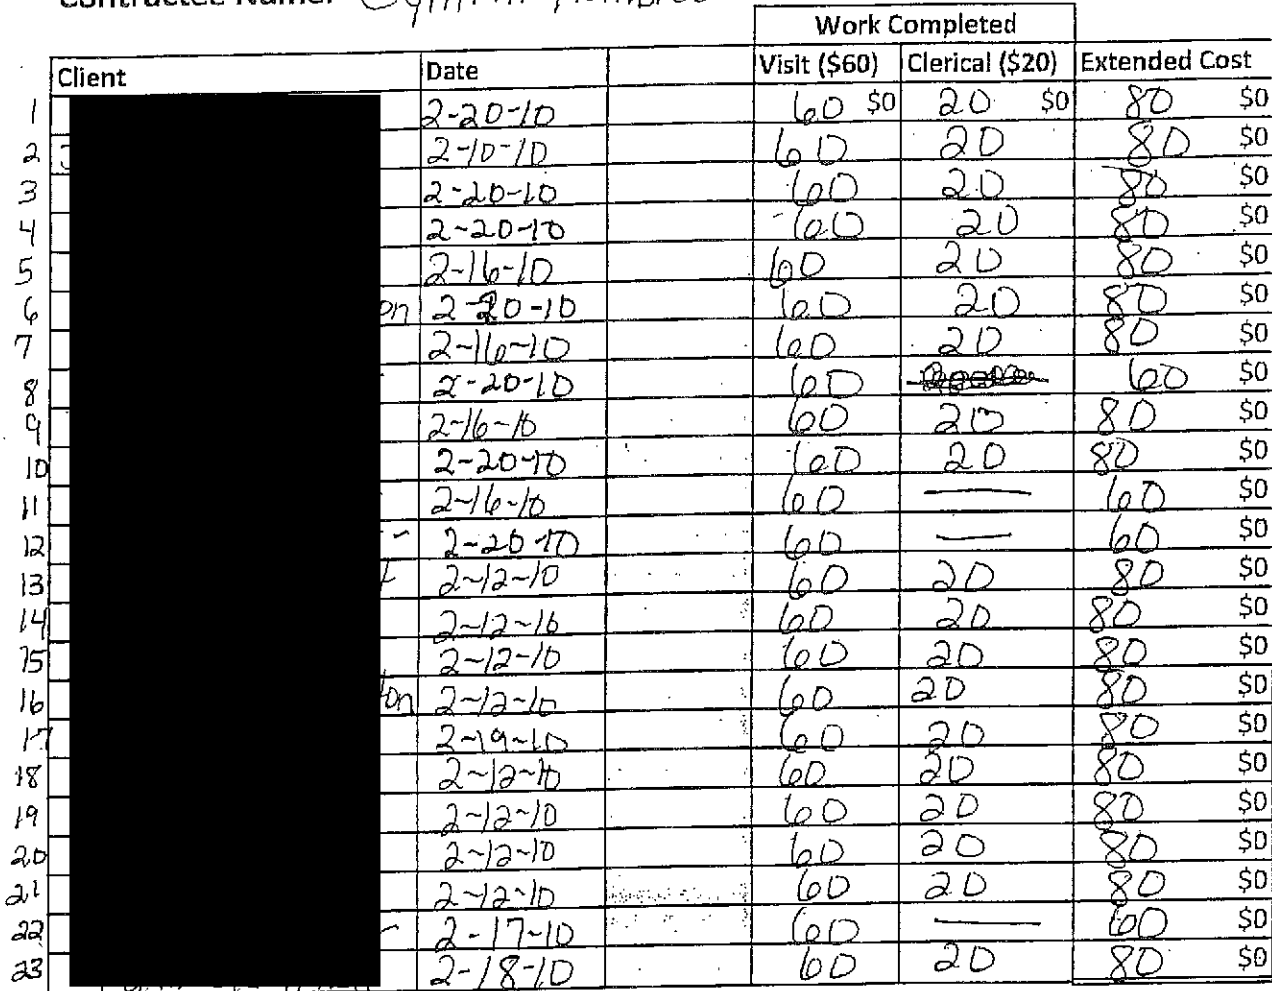 Contractee Name:
Work Completed
Client Date Visit ($60) Clerical ($20) Extended Cost
1 2-20-10 60 $0 20 $0 80 $0
2 2-10-10 60 20 80 $0
3 2-20-10 60 20 80 $0
4 2-20-10 60 20 80 $0
5 2-16-10 60 20 80 $0
6 on 2-20-10 60 20 80 $0
7 2-16-10 60 20 80 $0
8 2-20-10 60 60 $0
9 2-16-10 60 20 80 $0
10 2-20-10 60 20 80 $0
11 2-16-10 60 — 60 $0
12 2-20-10 60 — 60 $0
13 2-12-10 60 20 80 $0
14 2-12-10 60 20 80 $0
15 2-12-10 60 20 80 $0
16 on 2-12-10 60 20 80 $0
17 2-19-10 60 20 80 $0
18 2-12-10 60 20 80 $0
19 2-12-10 60 20 80 $0
20 2-12-10 60 20 80 $0
21 2-12-10 60 20 80 $0
22 2-17-10 60 — 60 $0
23 2-18-10 60 20 80 $0